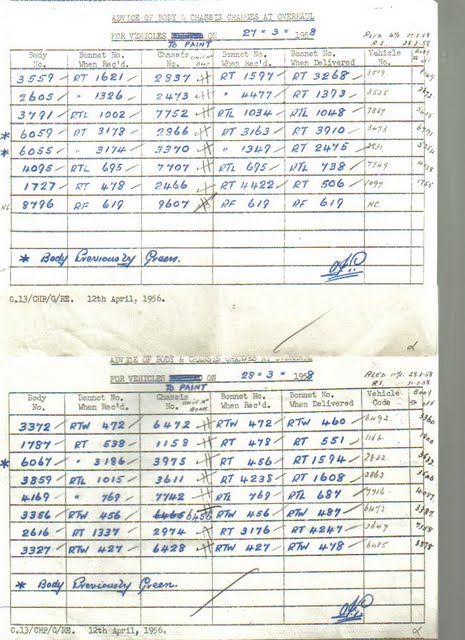 ADVICE OF BODY & CHASSIS CHANGES AT OVERHAUL
FOR VEHICLES ON 27 = 3 = 1958
TO PAINT
Body No. Bonnet No. When Rec'd. Chassis No. Bonnet No. When Rec'd. Bonnet No. When Delivered Vehicle No. Body
3559 RT 1621 2937 RT 1597 RT 3268 3519
2605 " 1326 2473 " 4477 RT 1393
3791 RTL 1002 7752 RTL 1034 RTL 1048 7867
* 6059 RT 3178 2966 RT 3163 RT 3910
* 6055 " 3174 3370 " 1349 RT 2475
4095 RTL 695 7707 RTL 695 RTL 738 7749
1727 RT 478 2466 RT 4422 RT 506 1097
NC 8796 RF 619 9607 RF 619 RF 619 NC
* Body Previously Green.
C.13/CHP/G/RE. 12th April, 1956.
ADVICE OF BODY & CHASSIS CHANGES AT OVERHAUL
FOR VEHICLES ON 28 = 3 = 1958
TO PAINT
Body No. Bonnet No. When Rec'd. Chassis No. Bonnet No. When Rec'd. Bonnet No. When Delivered Vehicle Code Body
3372 RTW 472 6472 RTW 472 RTW 460 6492 3360
1787 RT 538 1158 RT 478 RT 551 1166
* 6067 " 3186 3975 RT 456 RT 1594 2822
3859 RTL 1015 3611 RT 4235 RT 1608 2863
4169 " 769 7742 RTL 769 RTL 687 7716
3356 RTW 456 6456 RTW 456 RTW 487 6473 3387
2616 RT 1337 2974 RT 3176 RT 4247
3327 RTW 427 6428 RTW 427 RTW 478 6485 3378
* Body Previously Green.
C.13/CHP/G/RE. 12th April, 1956.